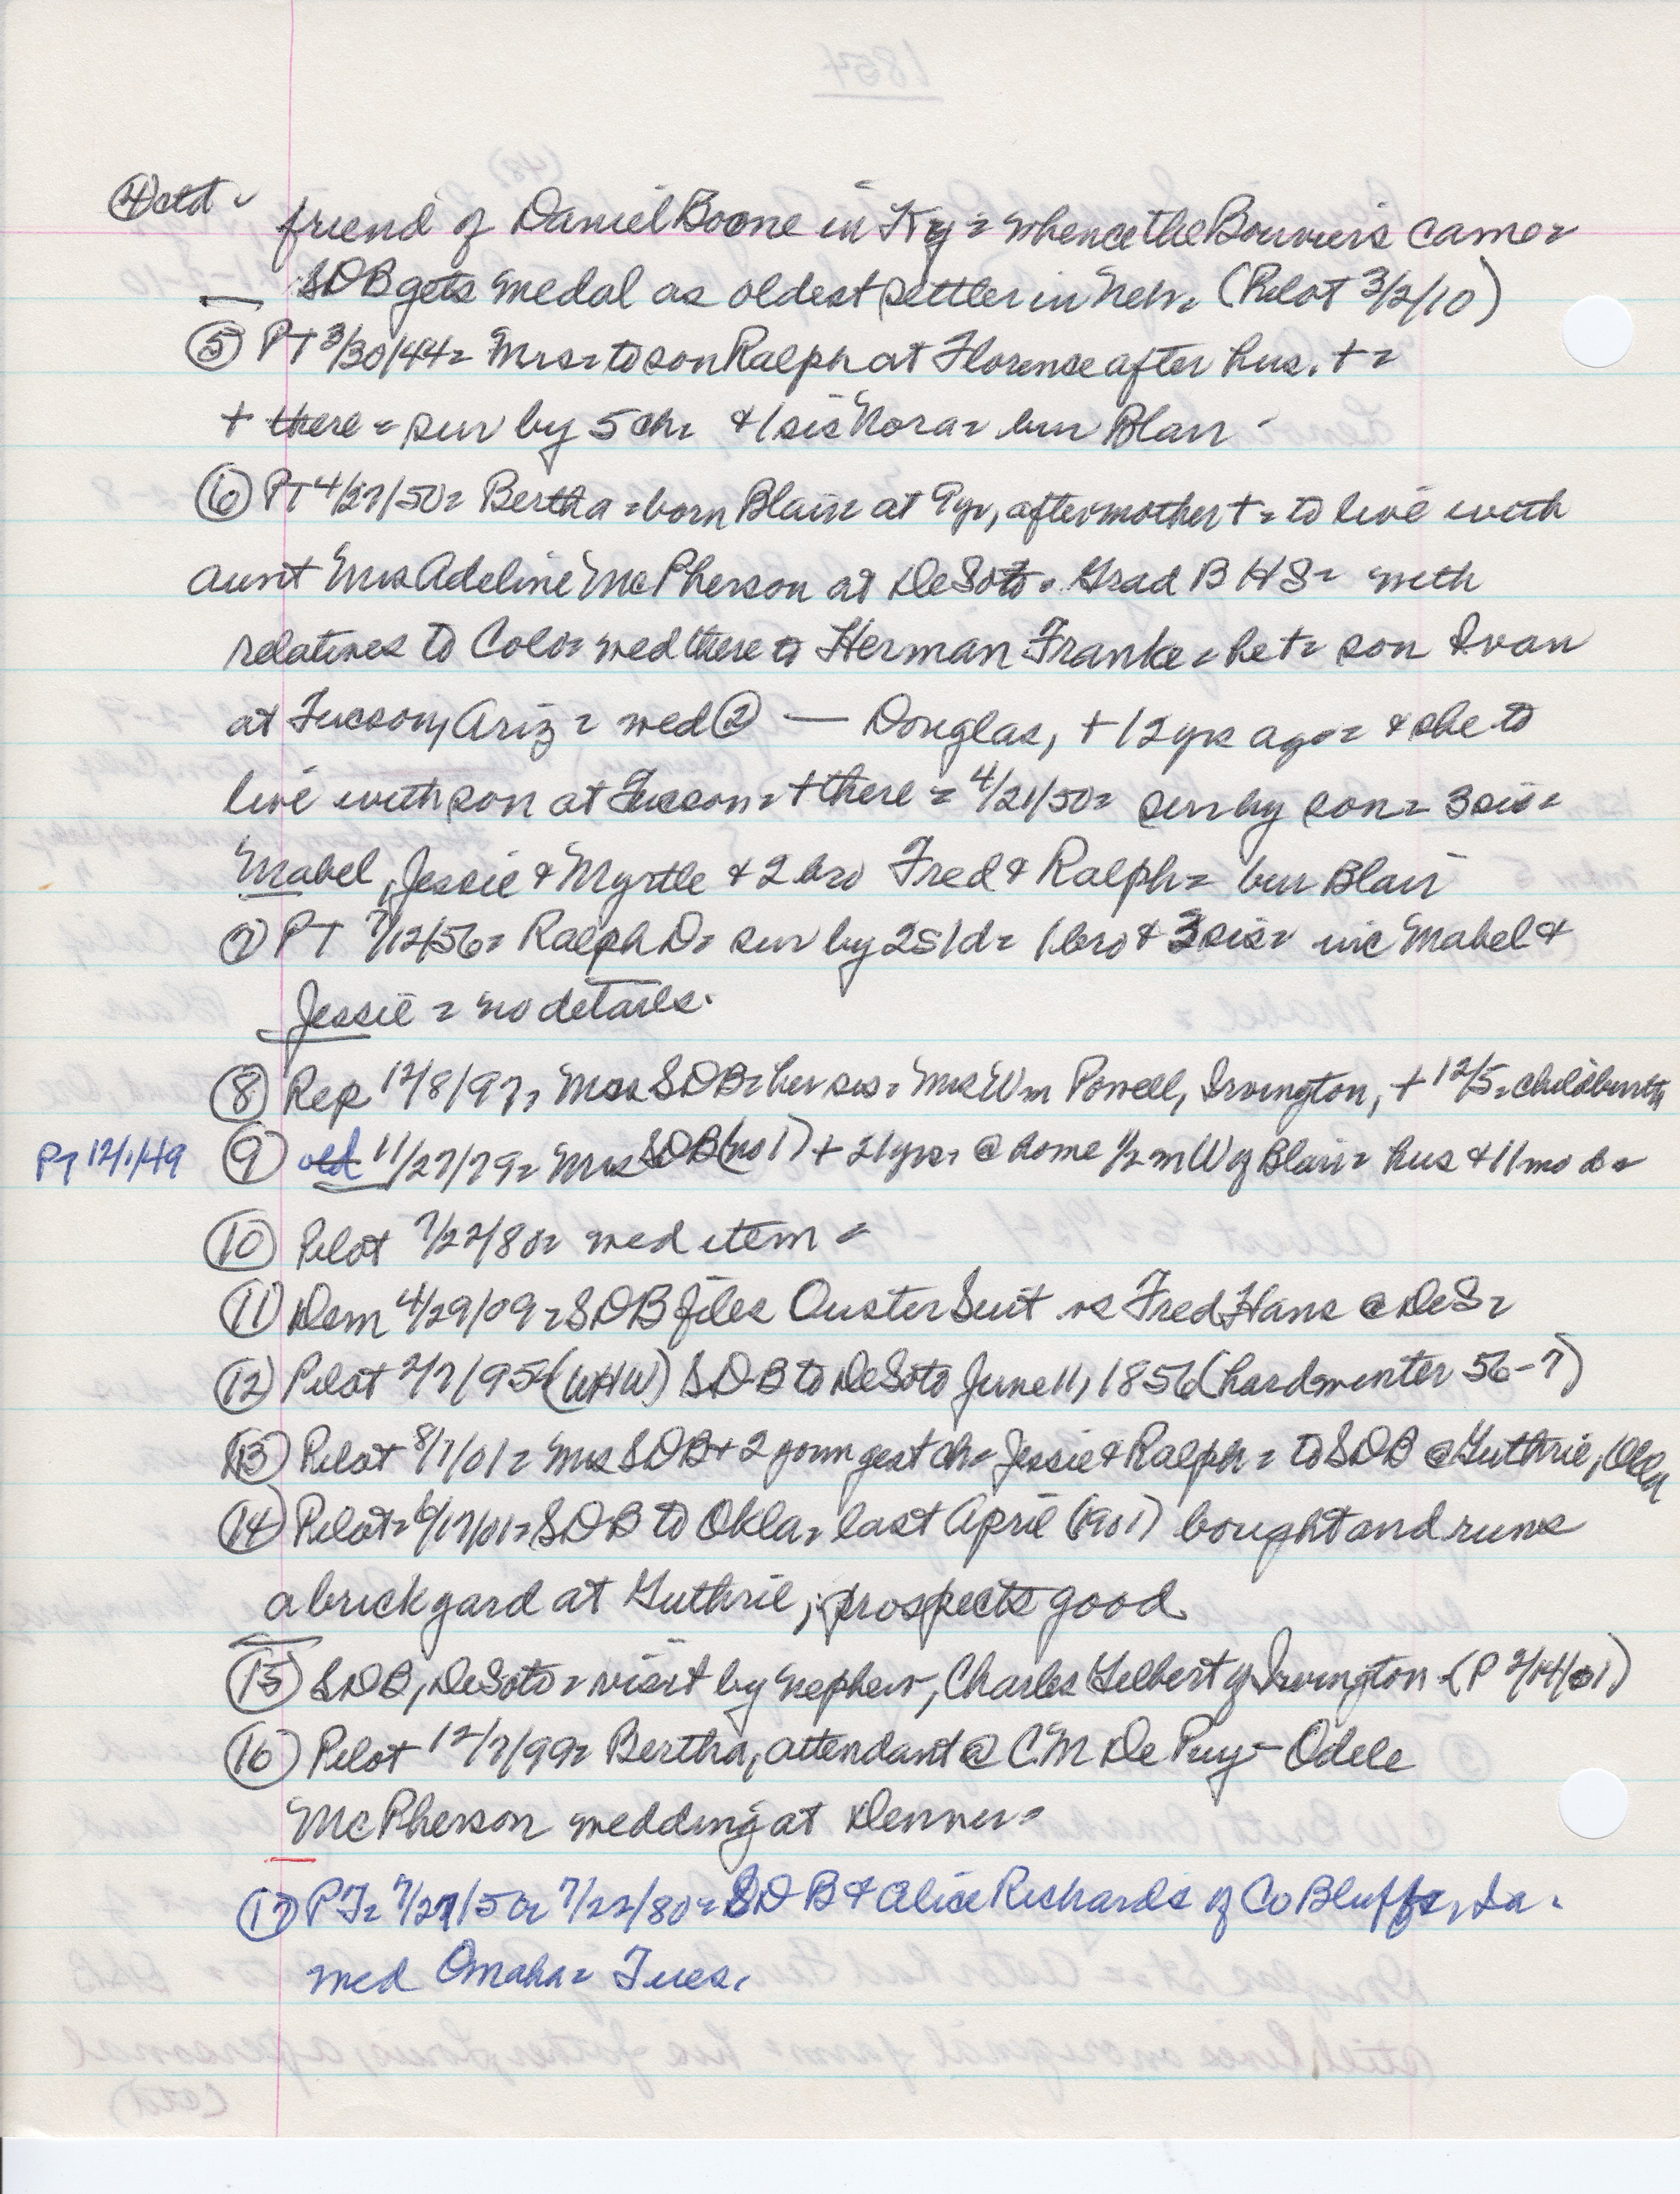 ④ ctd - friend of Daniel Boone in Ky = whence the Bouviers came =
SDB gets medal as oldest settler in Neb. (Pilot 3/2/10)
⑤ PT 3/30/44 = Mrs = to son Ralph at Florence after hus. + =
+ there = sur by 5 ch = & 1 sis Nora = bur Blair -
⑥ PT 4/27/50 = Bertha = born Blair = at 9 yr, after mother + = to live with
aunt Mrs Adeline McPherson at DeSoto. Grad B H S = with
relatives to Colo = wed there to Herman Franke = he + = son Ivan
at Tucson, Ariz = wed ② — Douglas, + 12 yrs ago = & she to
live with son at Tucson = + there = 4/21/50 = sur by son = 3 sis =
Mabel, Jessie & Myrtle & 2 bro Fred & Ralph = bur Blair
⑦ PT 7/12/56 = Ralph D = sur by 2 s 1 d = 1 bro & 3 sis = inc Mabel &
Jessie = no details.
⑧ Rep 12/8/97, Mrs SDB = her sis = Mrs Wm Powell, Irvington, + 12/5 = childbirth
⑨ old 11/27/79 = Mrs SDB (no 1) + 21 yrs = @ home 1/2 m W of Blair = hus & 11 mo d =
⑩ Pilot 7/22/80 = wed item =
⑪ Dem 4/29/09 = SDB files Ouster Suit vs Fred Hans @ DeS =
⑫ Pilot 2/7/95 (WHW) SDB to DeSoto June 11, 1856 (hard winter 56-7)
⑬ Pilot 8/1/01 = Mrs SDB + 2 youngest ch = Jessie & Ralph = to SDB @ Guthrie, Okla
⑭ Pilot = 6/17/01 = SDB to Okla = last April (1901) bought and runs
a brickyard at Guthrie, prospects good
⑮ SDB, DeSoto = visit by nephew, Charles Gilbert of Irvington - (P 2/14/01)
⑯ Pilot 12/7/99 = Bertha, attendant @ C.M DePuy - Odele
McPherson wedding at Denver =
⑰ PT = 7/27/50 = 7/22/80 = SDB & Alice Richards of Co Bluffs, Ia.
wed Omaha = Tues.